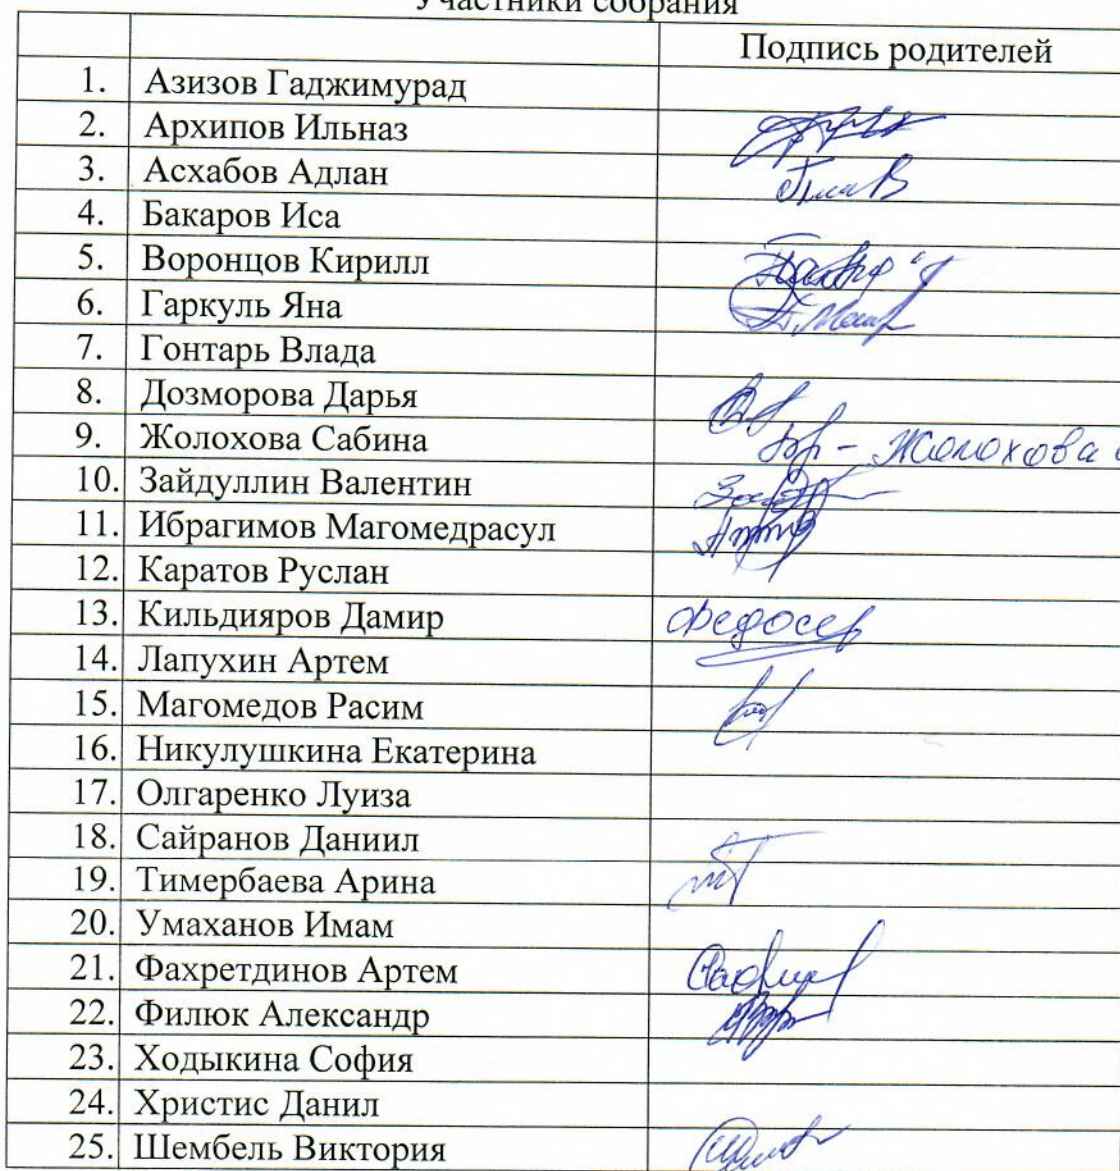 Участники собрания
Подпись родителей
1. Азизов Гаджимурад
2. Архипов Ильназ
3. Асхабов Адлан
4. Бакаров Иса
5. Воронцов Кирилл
6. Гаркуль Яна
7. Гонтарь Влада
8. Дозморова Дарья
9. Жолохова Сабина Жолохова
10. Зайдуллин Валентин
11. Ибрагимов Магомедрасул
12. Каратов Руслан
13. Кильдияров Дамир
14. Лапухин Артем
15. Магомедов Расим
16. Никулушкина Екатерина
17. Олгаренко Луиза
18. Сайранов Даниил
19. Тимербаева Арина
20. Умаханов Имам
21. Фахретдинов Артем
22. Филюк Александр
23. Ходыкина София
24. Христис Данил
25. Шембель Виктория